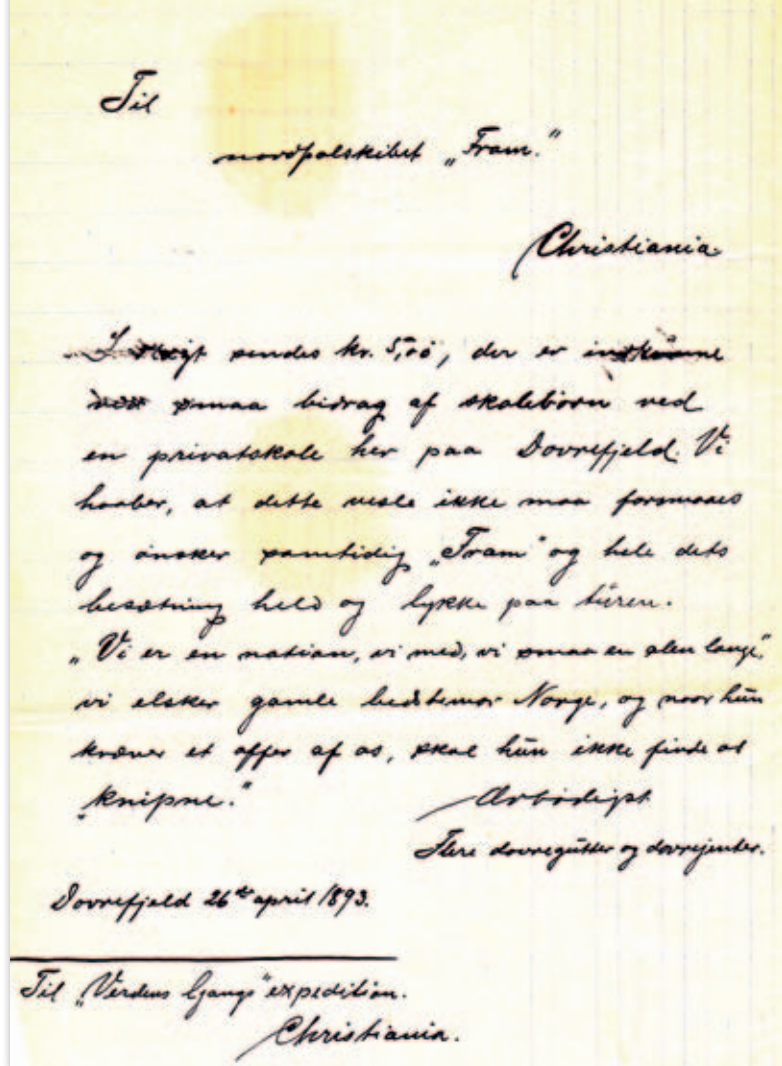 Til
nordpolskibet „Fram."
Christiania.
sendes kr. 5,00, der er indkomne
smaa bidrag af skolebörn ved
en privatskole her paa Dovrefjeld. Vi
haaber, at dette vesle ikke maa forsmaaes
og önsker samtidig „Fram" og hele dets
besætning held og lykke paa turen.
„Vi er en nation, vi med, vi smaa en alen lange",
vi elsker gamle bedstemor Norge, og naar hun
kræver et offer af os, skal hun ikke finde os
„knipne."
Ærbödigst
Flere dovregutter og dovrejenter.
Dovrefjeld 26de april 1893.
Til „Verdens Gangs" expedition.
Christiania.